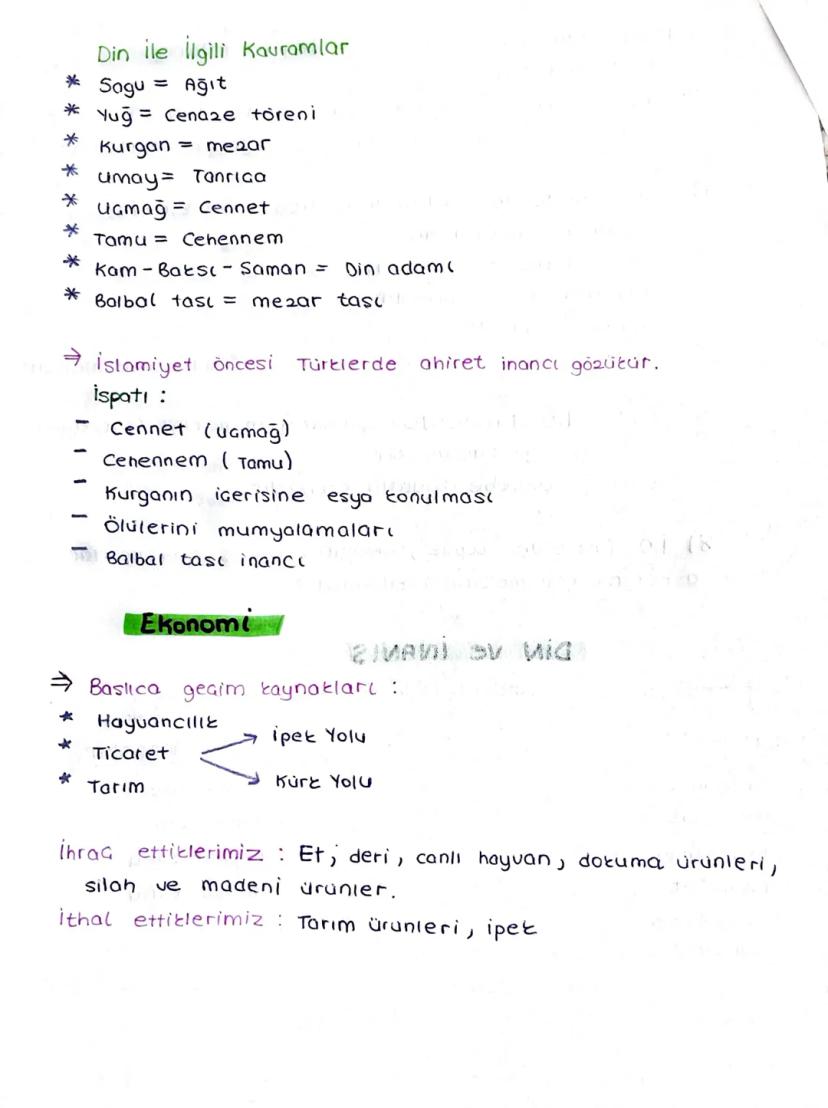 Din ile İlgili Kavramlar
* Sagu = Ağıt
* Yuğ = Cenaze töreni
* Kurgan = mezar
* Umay = Tanrıça
* Uçmağ = Cennet
* Tamu = Cehennem
* Kam - Baksı - Şaman = Din adamı
* Balbal taşı = mezar taşı
⇒ İslamiyet öncesi Türklerde ahiret inancı gözükür.
İspatı :
- Cennet (uçmağ)
- Cehennem ( Tamu)
- Kurganın içerisine eşya konulması
- Ölülerini mumyalamaları
- Balbal taşı inancı
Ekonomi
DİN VE İNANIŞ
⇒ Başlıca geçim kaynakları :
* Hayvancılık
* Ticaret → İpek Yolu
→ Kürk Yolu
* Tarım
İhraç ettiklerimiz : Et, deri, canlı hayvan, dokuma ürünleri,
silah ve madeni ürünler.
İthal ettiklerimiz : Tarım ürünleri, ipek